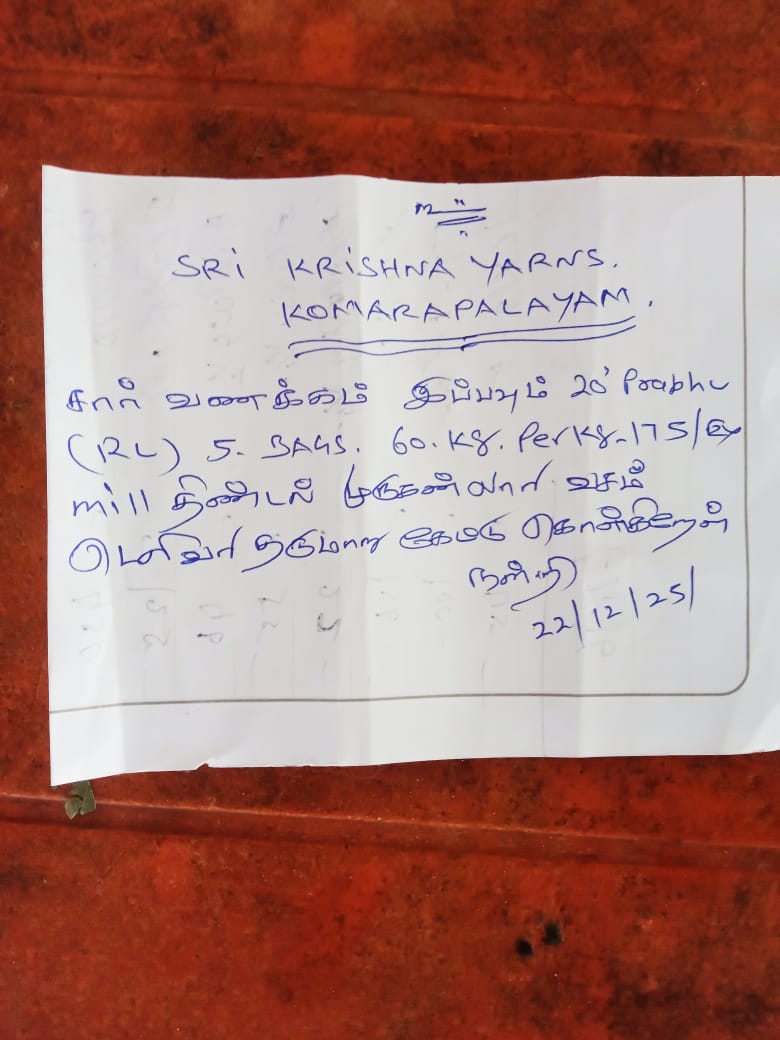 SRI KRISHNA YARNS.
KOMARAPALAYAM.
சார் வணக்கம் இப்பவும் 20' Prabhu
(RL) 5. BAGS. 60. Kg. Per Kg - 175/
mill திண்டல் முருகன் லாரி வசம்
டெலிவரி தருமாறு கேட்டு கொள்கிறேன்
நன்றி
22/12/25/